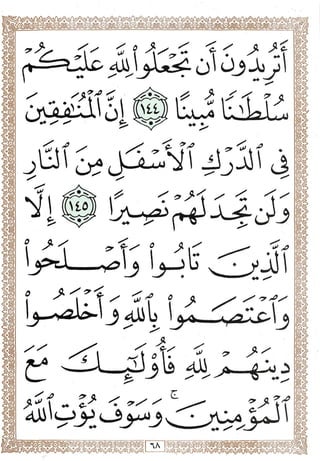 أَتُرِيدُونَ أَن تَجْعَلُوا۟ لِلَّهِ عَلَيْكُمْ
سُلْطَٰنًا مُّبِينًا ١٤٤ إِنَّ ٱلْمُنَٰفِقِينَ
فِى ٱلدَّرْكِ ٱلْأَسْفَلِ مِنَ ٱلنَّارِ
وَلَن تَجِدَ لَهُمْ نَصِيرًا ١٤٥ إِلَّا
ٱلَّذِينَ تَابُوا۟ وَأَصْلَحُوا۟
وَٱعْتَصَمُوا۟ بِٱللَّهِ وَأَخْلَصُوا۟
دِينَهُمْ لِلَّهِ فَأُو۟لَٰٓئِكَ مَعَ
ٱلْمُؤْمِنِينَ ۖ وَسَوْفَ يُؤْتِ ٱللَّهُ
٦٨